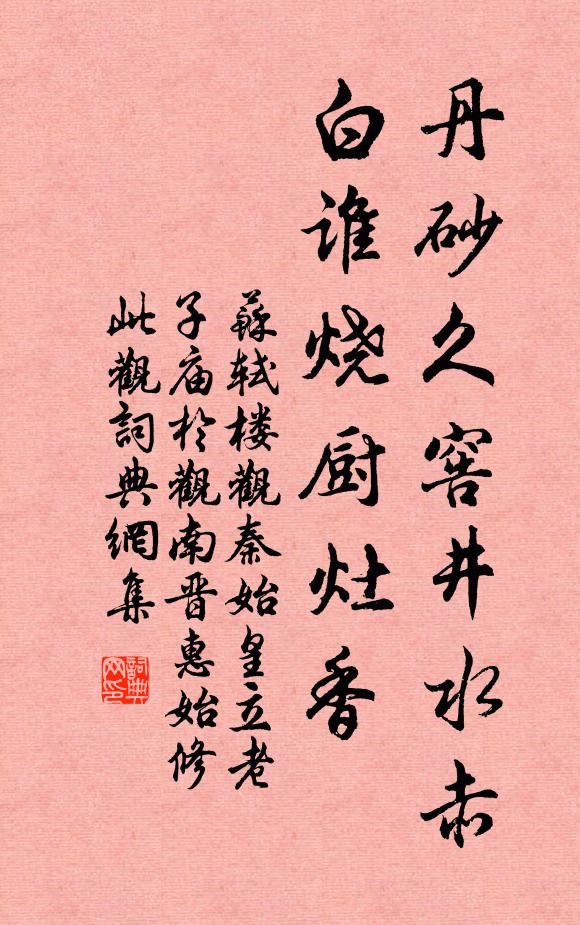 丹砂久窖井水赤
白谁烧厨灶香
蘇轼楼觀秦始皇立老
子庙於觀南晋惠始修
此觀詞典網集
詞典
网印